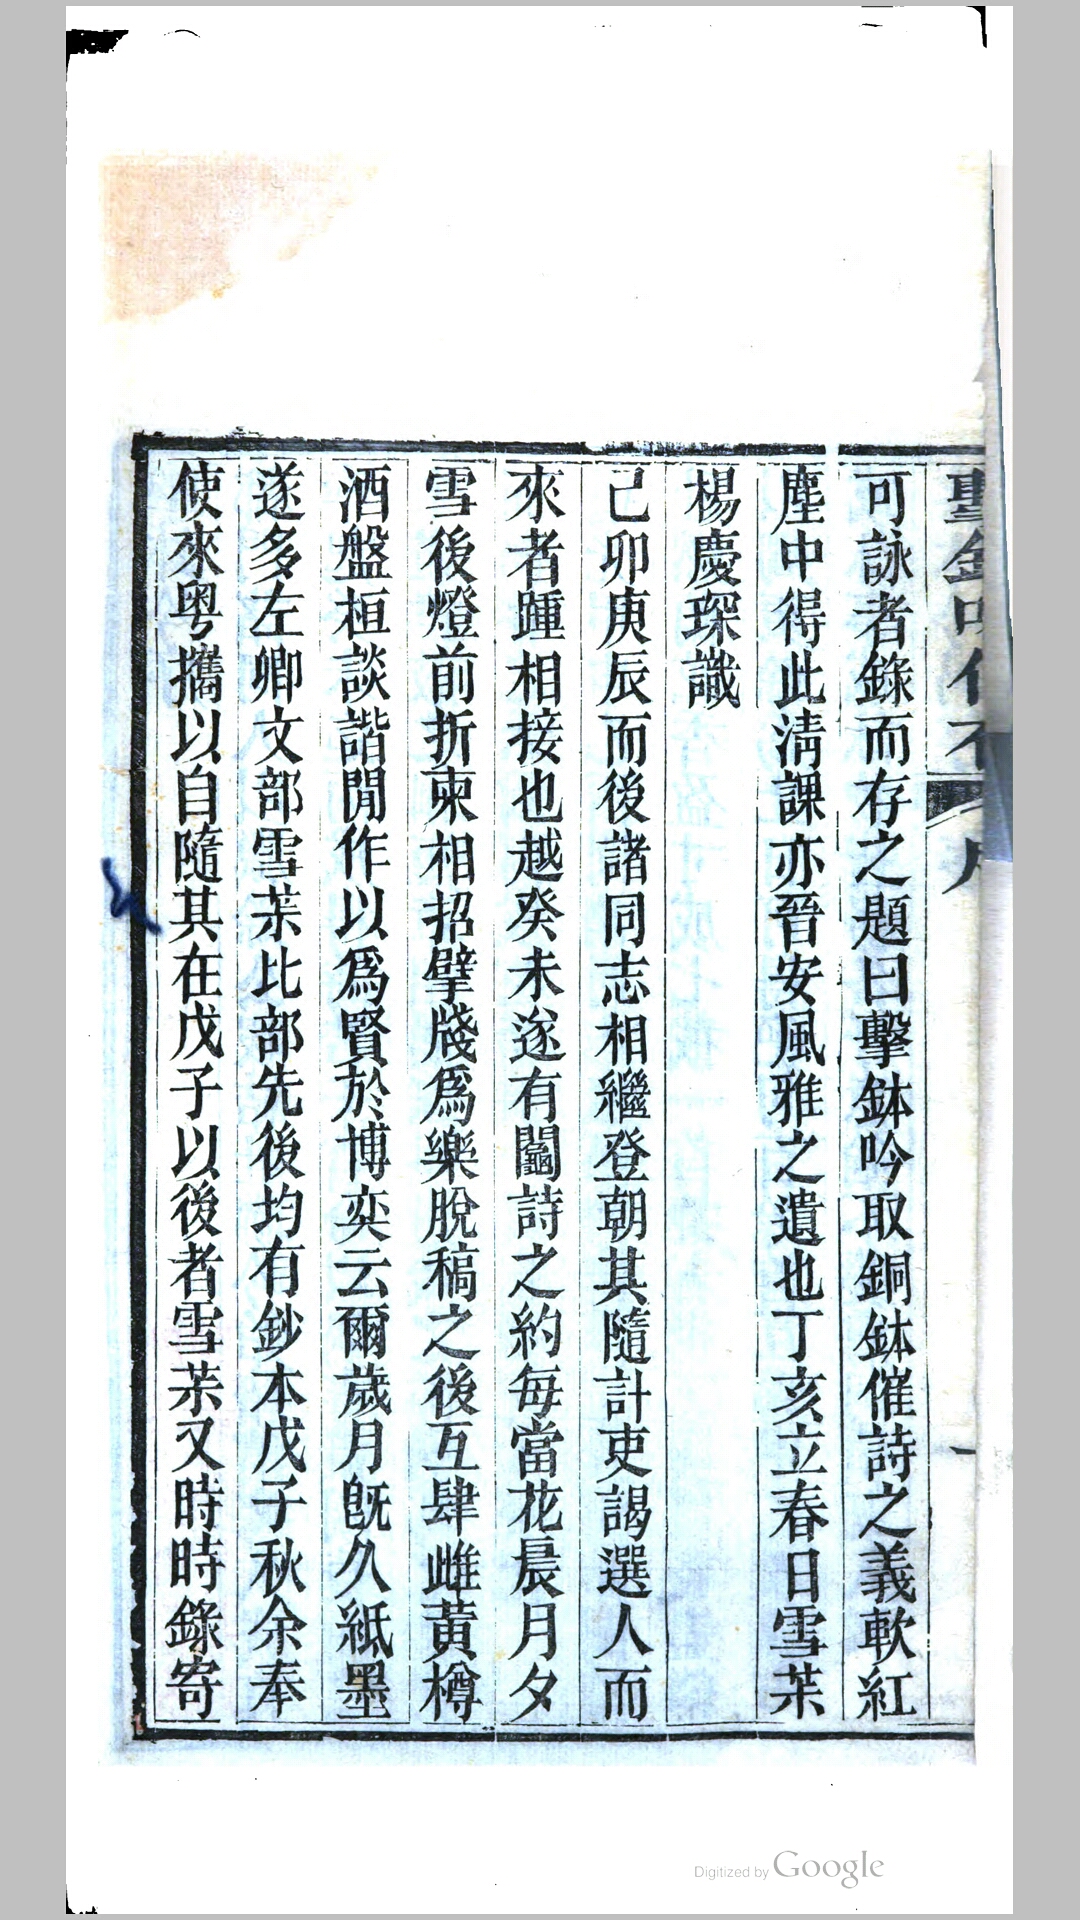 可詠者錄而存之題曰擊鉢吟取銅鉢催詩之義軟紅
塵中得此淸課亦晉安風雅之遺也丁亥立春日雪茮
楊慶琛識
己卯庚辰而後諸同志相繼登朝其隨計吏謁選人而
來者踵相接也越癸未遂有鬮詩之約每當花晨月夕
雪後燈前折柬相招擘牋爲樂脫稿之後互肆雌黃樽
酒盤桓談諧閒作以爲賢於博奕云爾歲月旣久紙墨
遂多左卿文部雪茮比部先後均有鈔本戊子秋余奉
使來粵攜以自隨其在戊子以後者雪茮又時時錄寄
Digitized by Google